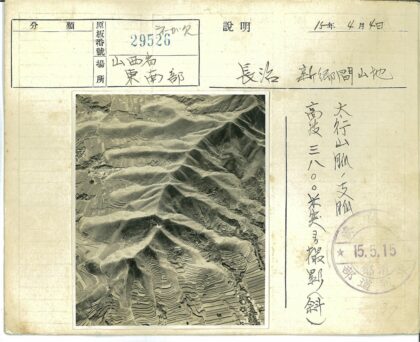 分類
原板番號
ネガ欠
29526
場所
山西省
東南部
説明
15年 4月4日
長治 新郷間山地
太行山脈ノ支脈
高度三八〇〇米突ヨリ撮影(斜)
15.5.15